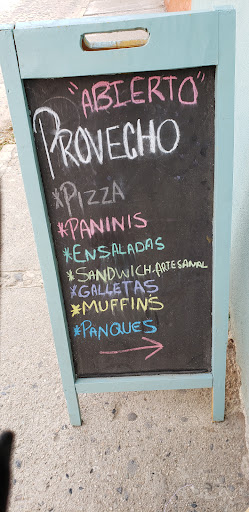 "ABIERTO"
PROVECHO
*PIZZA
*PANINIS
*ENSALADAS
*SANDWICH-ARTESANAL
*GALLETAS
*MUFFINS
*PANQUES